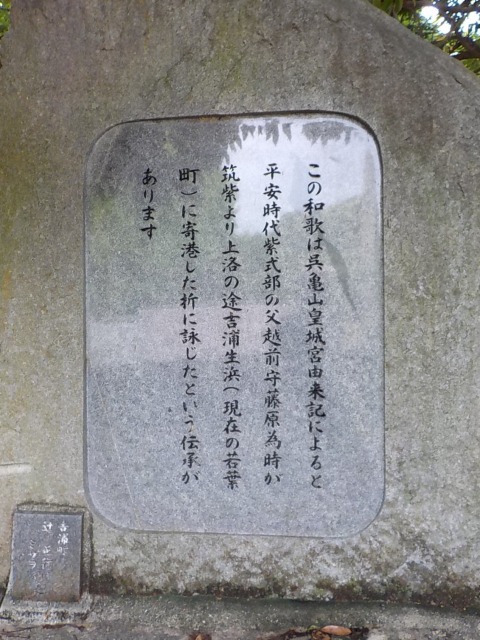 この和歌は呉亀山皇城宮由来記によると
平安時代紫式部の父越前守藤原為時か
筑紫より上洛の途吉浦生浜（現在の若葉
町）に寄港した折に詠じたという伝承が
あります
吉浦町